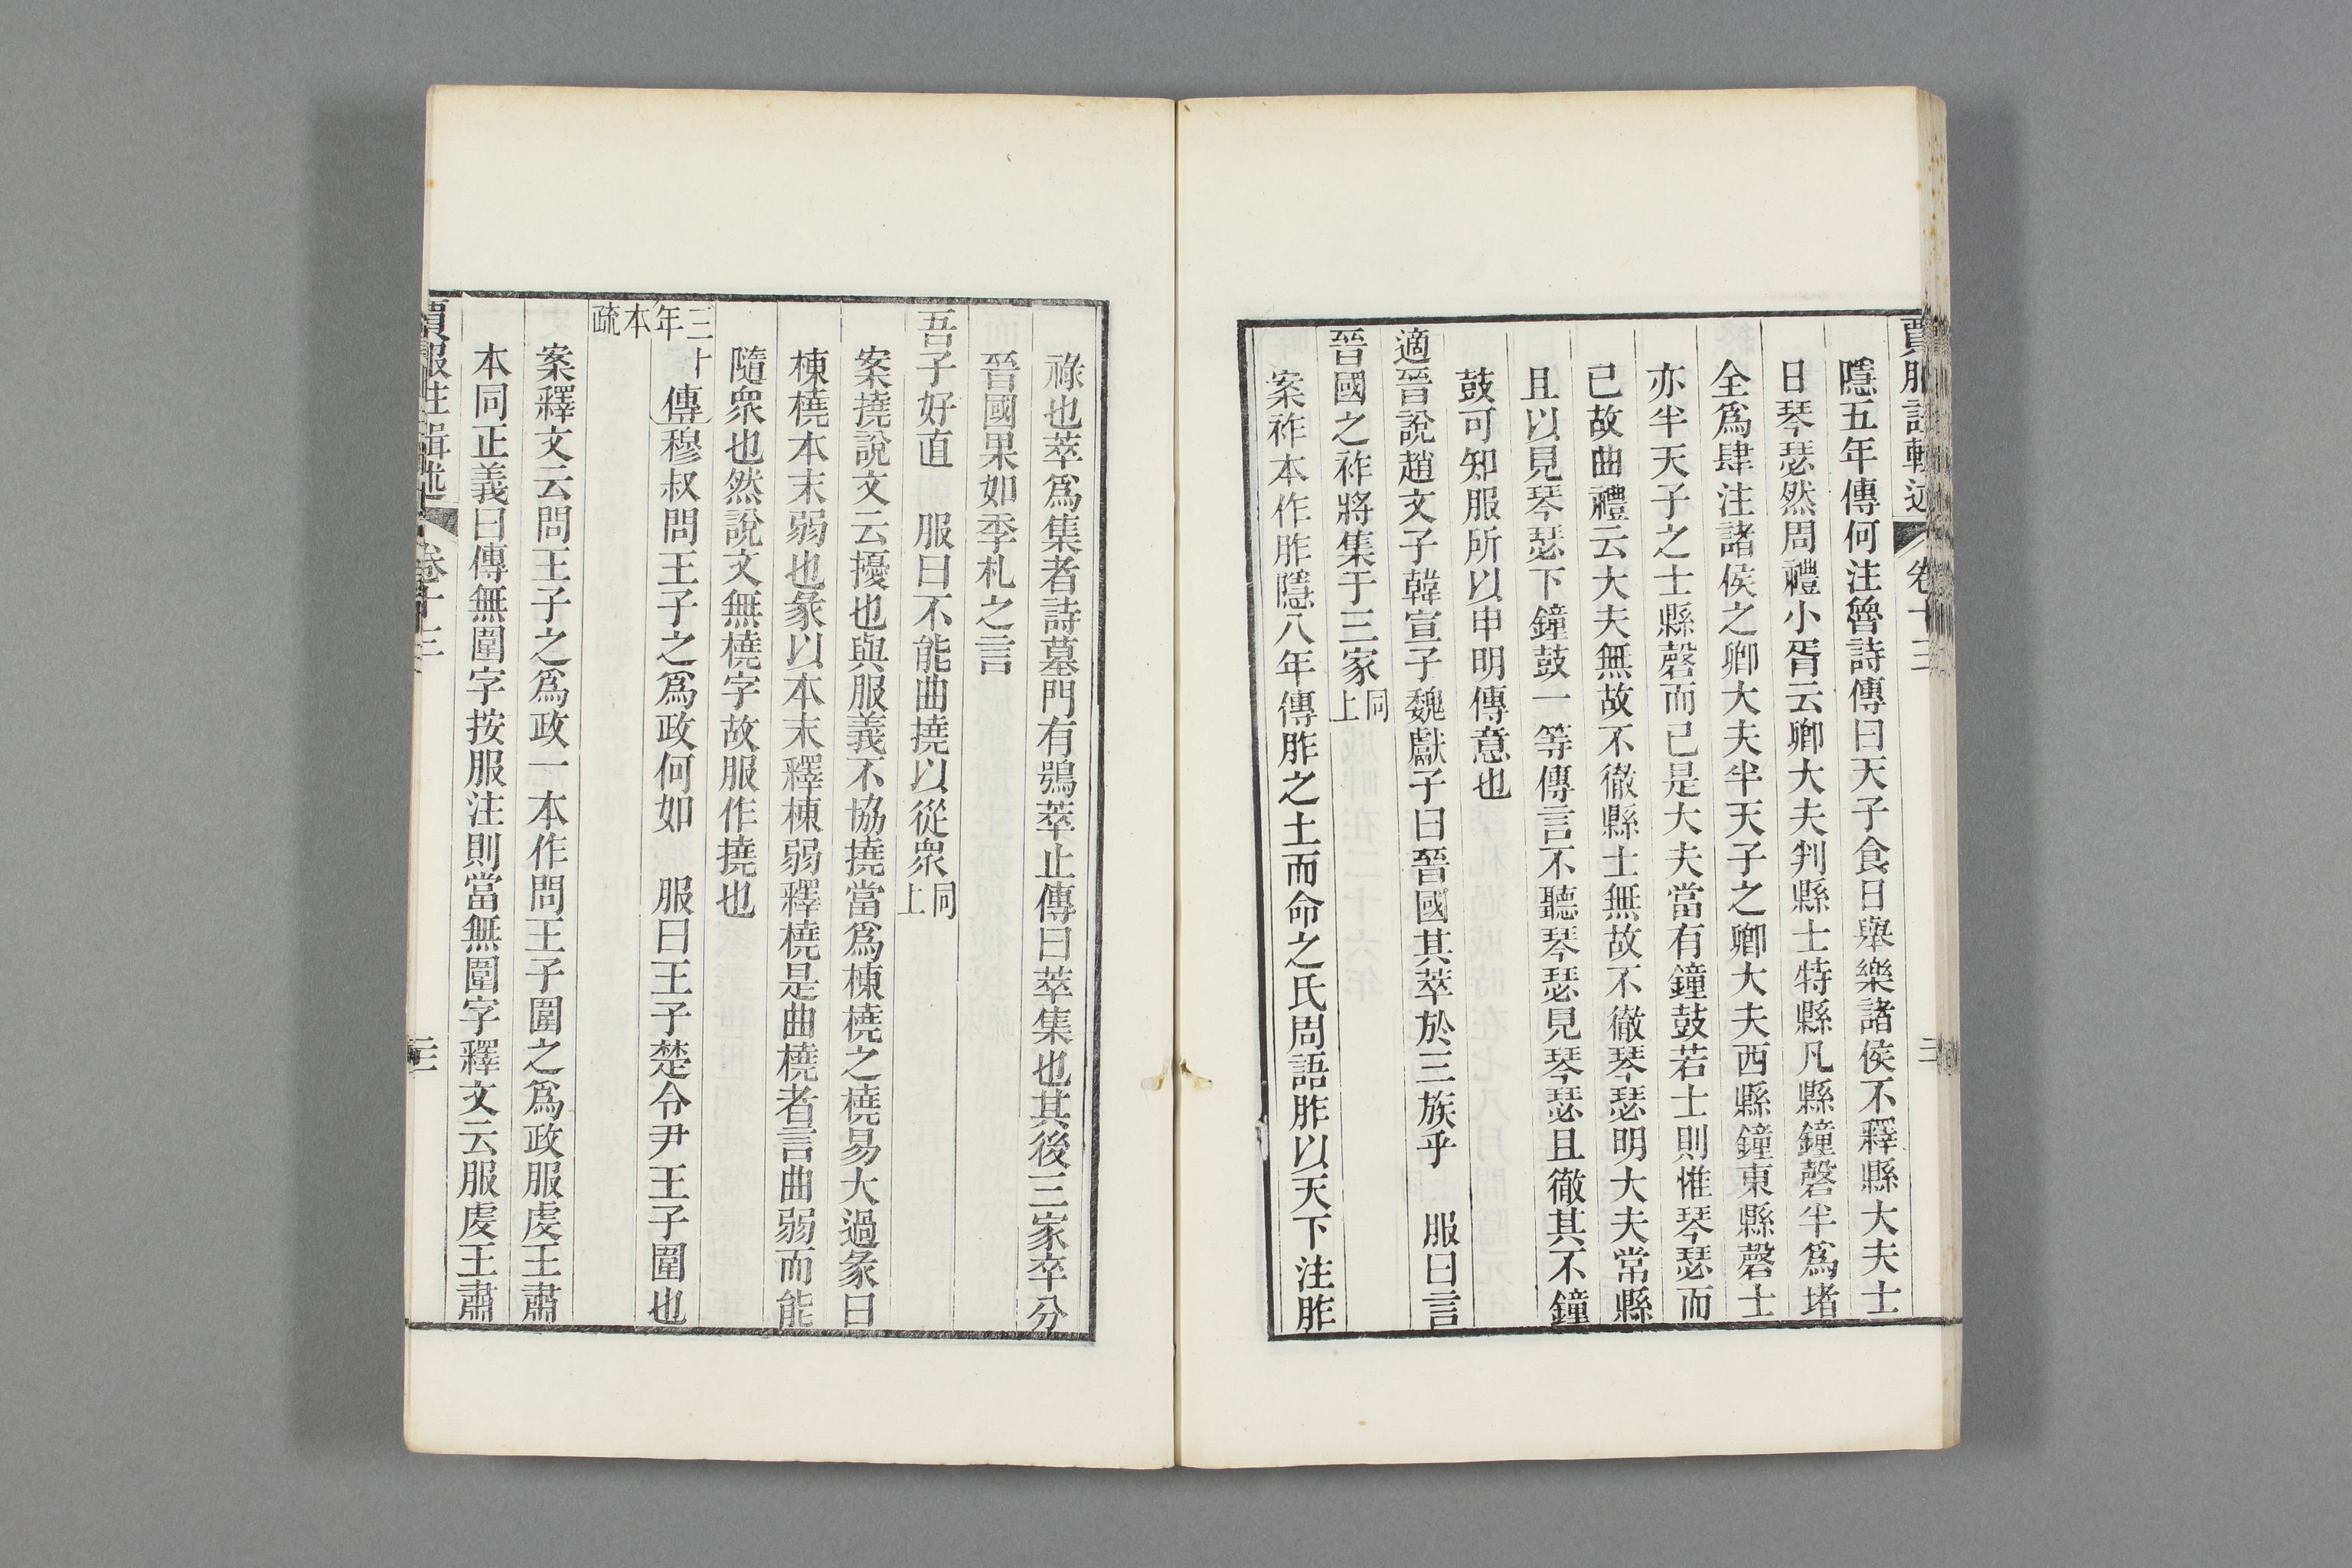 隱五年傳何注魯詩傳曰天子食日舉樂諸侯不釋縣大夫士
日琴瑟然周禮小胥云卿大夫判縣士特縣凡縣鐘磬半爲堵
全爲肆注諸侯之卿大夫半天子之卿大夫西縣鐘東縣磬士
亦半天子之士縣磬而已是大夫當有鐘鼓若士則惟琴瑟而
已故曲禮云大夫無故不徹縣士無故不徹琴瑟明大夫常縣
且以見琴瑟下鐘鼓一等傳言不聽琴瑟見琴瑟且徹其不鐘
鼓可知服所以申明傳意也
適晉說趙文子韓宣子魏獻子曰晉國其萃於三族乎　服曰言
晉國之祚將集于三家同上
案祚本作胙隱八年傳胙之土而命之氏周語胙以天下注胙
祿也萃爲集者詩墓門有鴞萃止傳曰萃集也其後三家卒分
晉國果如季札之言
吾子好直　服曰不能曲撓以從眾同上
案撓說文云擾也與服義不協撓當爲棟橈之橈易大過彖曰
棟橈本末弱也彖以本末釋棟弱釋橈是曲橈者言曲弱而能
隨眾也然說文無橈字故服作撓也
三十年傳穆叔問王子之爲政何如　服曰王子楚令尹王子圍也
本疏
案釋文云問王子之爲政一本作問王子圍之爲政服虔王肅
本同正義曰傳無圍字按服注則當無圍字釋文云服虔王肅
賈服注輯述　卷十三　三